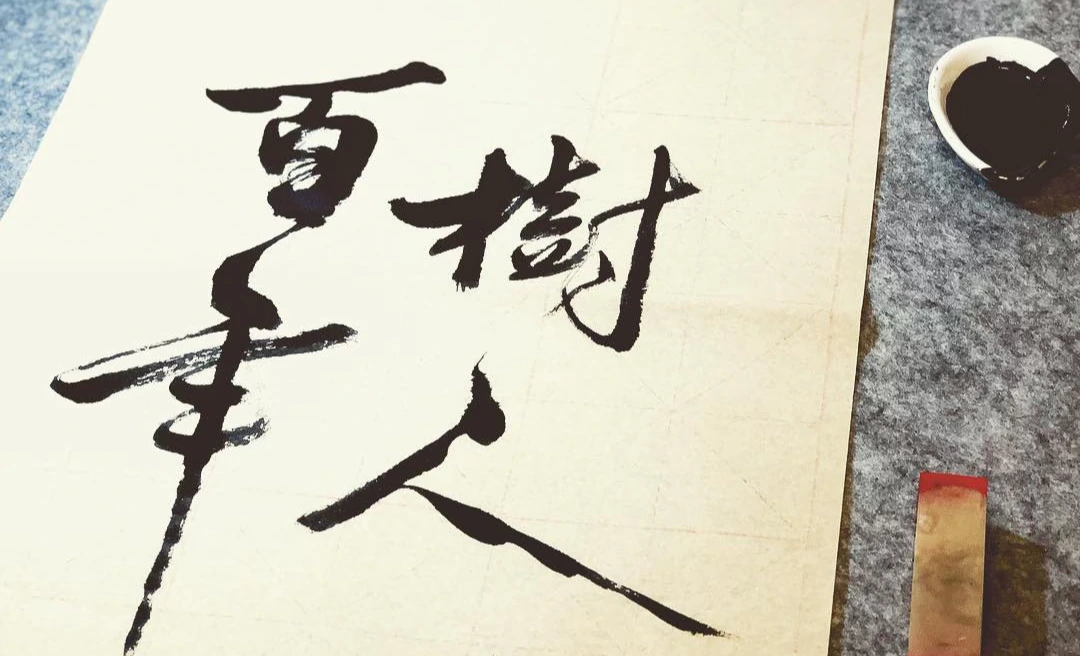 百年
樹人